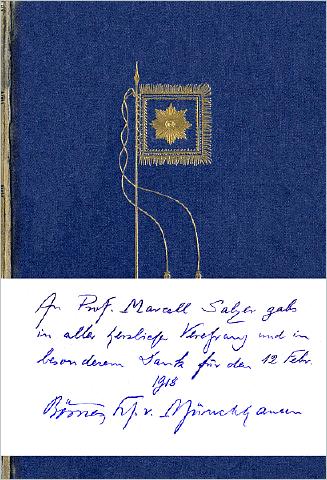 An Prof. Marcell Salzer gabs
in alter herzlicher Verehrung und in
besonderem Dank für den 12 Febr.
1918
Börries Frh. v. Münchhausen